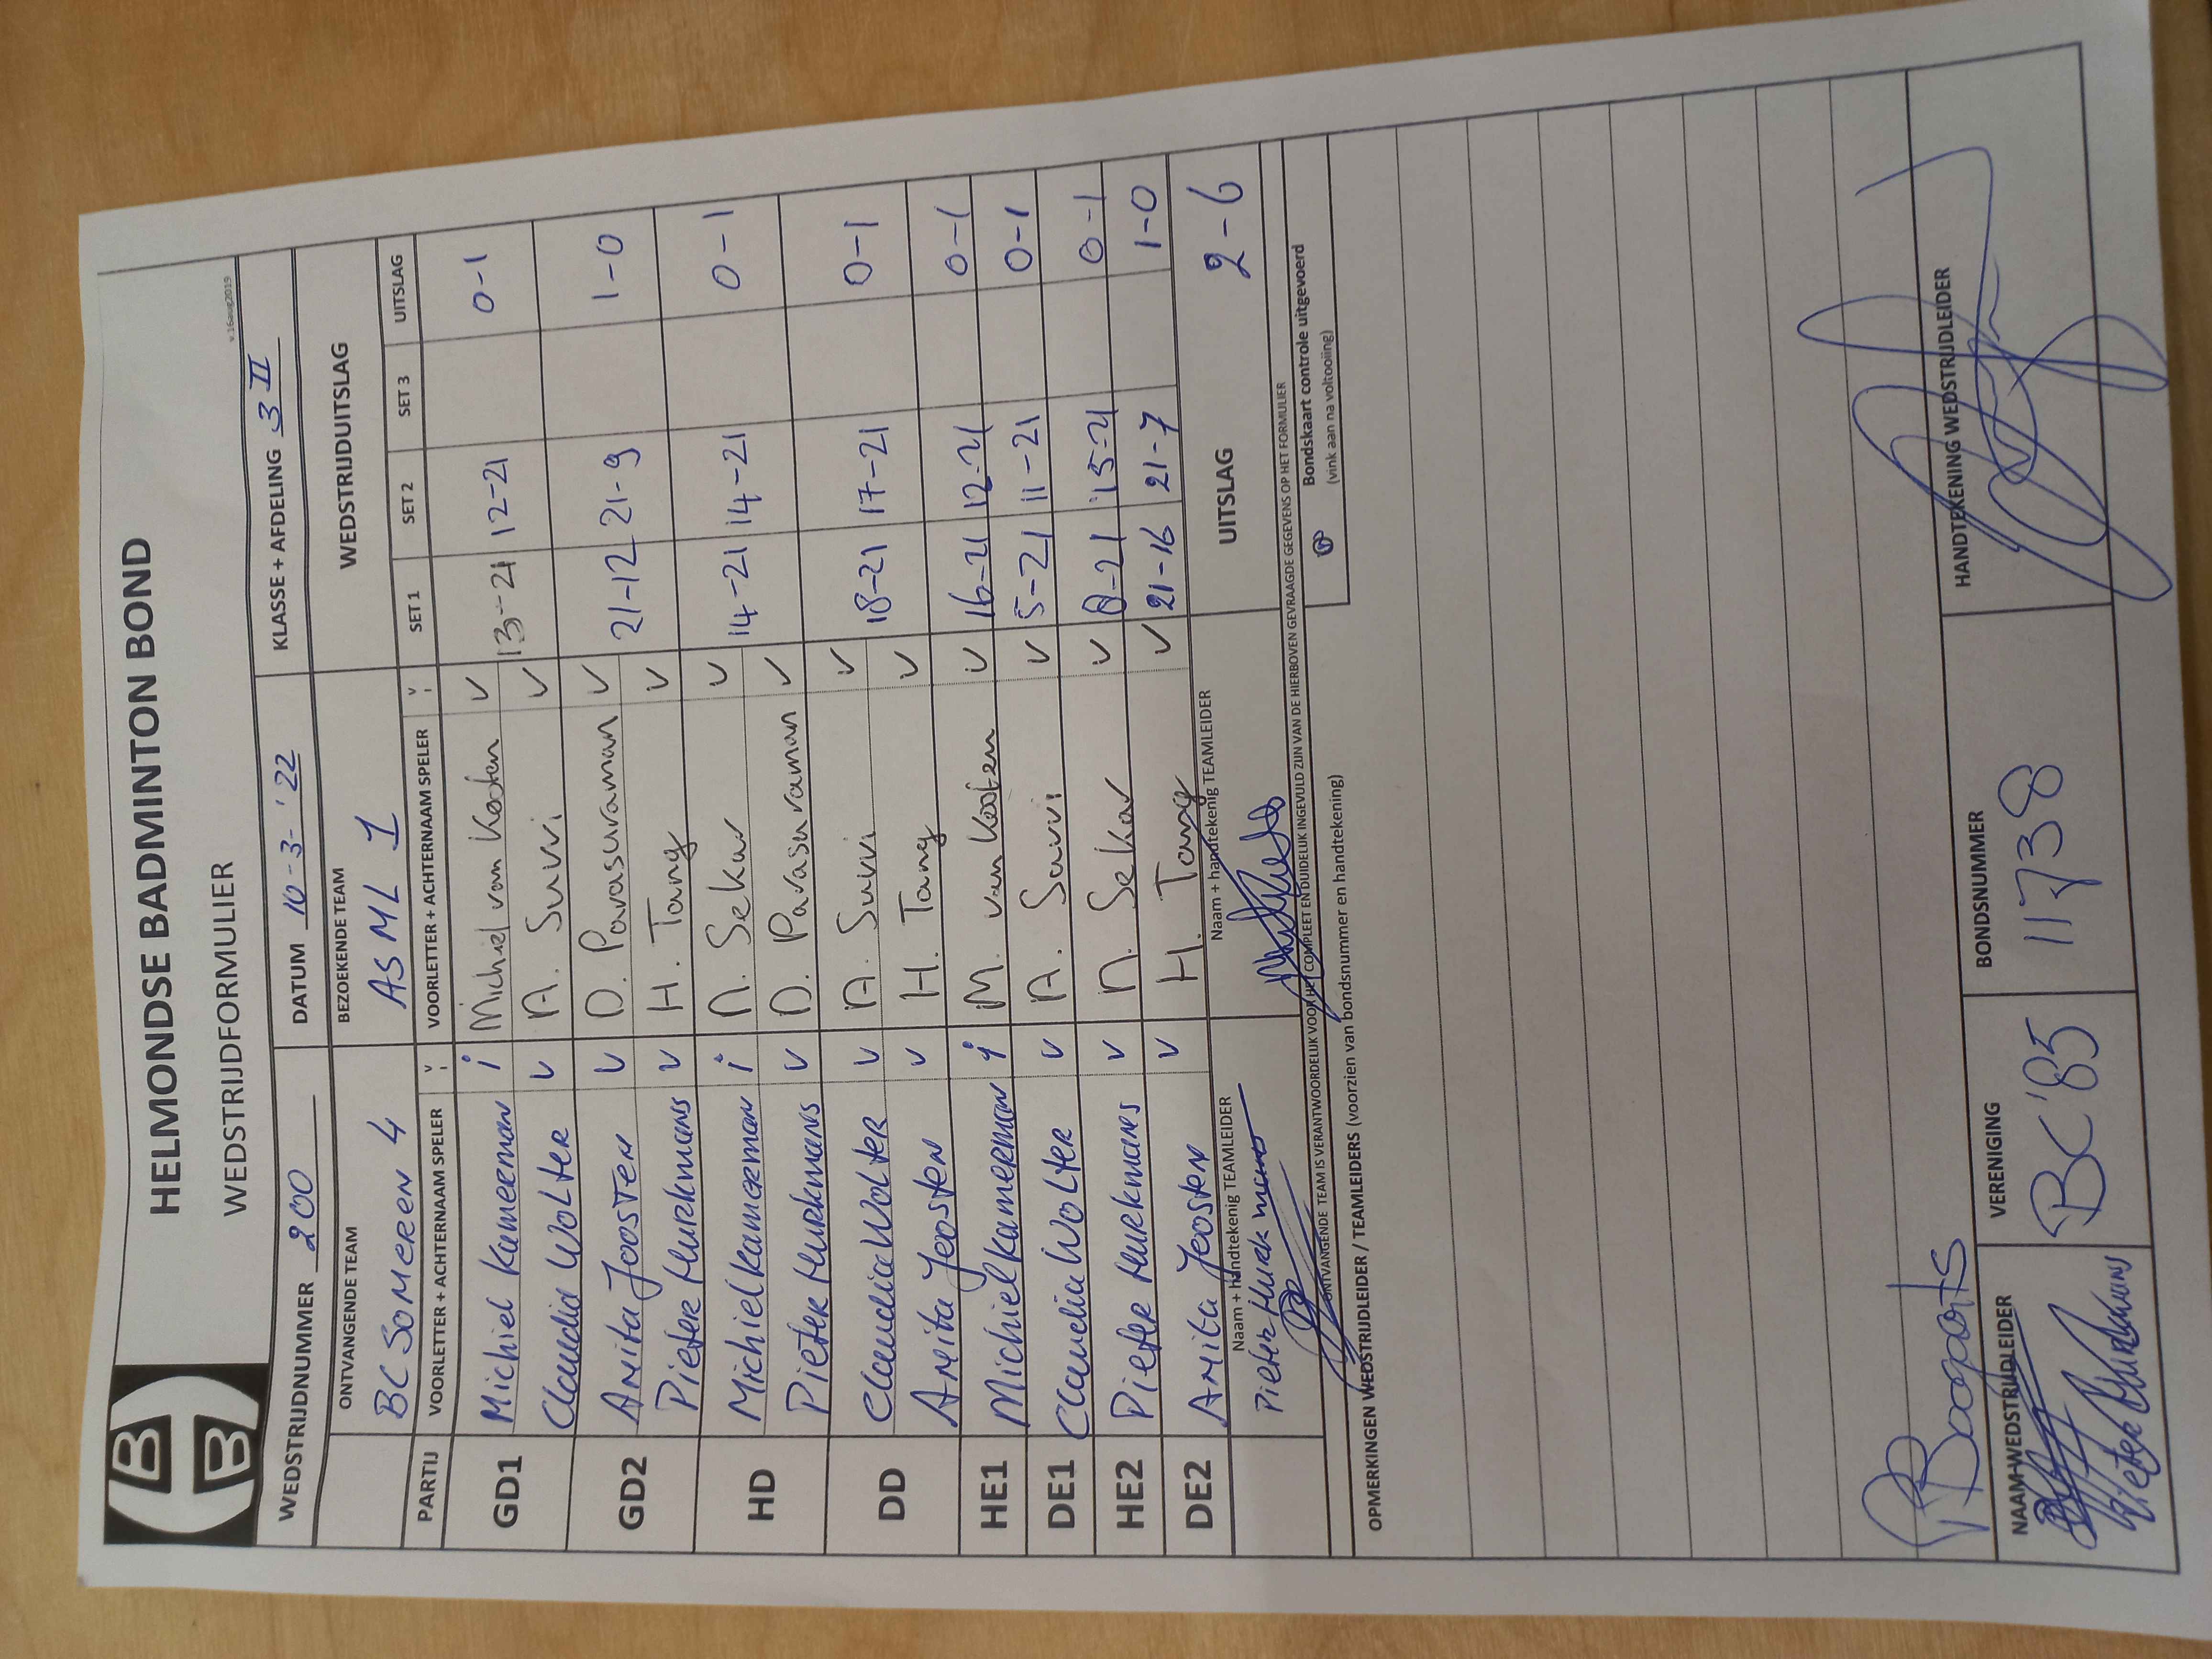 HELMONDSE BADMINTON BOND
WEDSTRIJDFORMULIER
v.16aug2019
WEDSTRIJDNUMMER 200 DATUM 10-3-'22 KLASSE + AFDELING 3 II
ONTVANGENDE TEAM BEZOEKENDE TEAM WEDSTRIJDUITSLAG
BC SOMEREN 4 ASML 1
PARTIJ VOORLETTER + ACHTERNAAM SPELER V I VOORLETTER + ACHTERNAAM SPELER V I SET 1 SET 2 SET 3 UITSLAG
GD1 Michiel Kamerman i Michiel van Kooten v 13-21 12-21 0-1
Claudia Wolter v A. Survi v
GD2 Anita Joosten v D. Parasuraman v 21-12 21-9 1-0
Pieter Hurkmans v H. Tang v
HD Michiel Kamerman i N. Sekar v 14-21 14-21 0-1
Pieter Hurkmans v D. Parasuraman v
DD Claudia Wolter v A. Survi v 18-21 17-21 0-1
Anita Joosten v H. Tang v
HE1 Michiel Kamerman i M. van Kooten v 16-21 12-21 0-1
DE1 Claudia Wolter v A. Survi v 5-21 11-21 0-1
HE2 Pieter Hurkmans v N. Sekar v 8-21 15-21 0-1
DE2 Anita Joosten v H. Tang v 21-16 21-7 1-0
Naam + handtekenig TEAMLEIDER Naam + handtekenig TEAMLEIDER UITSLAG 2-6
Pieter Hurkmans
ONTVANGENDE TEAM IS VERANTWOORDELIJK VOOR HET COMPLEET EN DUIDELIJK INGEVULD ZIJN VAN DE HIERBOVEN GEVRAAGDE GEGEVENS OP HET FORMULIER
Bondskaart controle uitgevoerd
(vink aan na voltooiing)
OPMERKINGEN WEDSTRIJDLEIDER / TEAMLEIDERS (voorzien van bondsnummer en handtekening)
P Boogaarts
NAAM WEDSTRIJDLEIDER VERENIGING BONDSNUMMER HANDTEKENING WEDSTRIJDLEIDER
Pieter Hurkmans BC'85 11738